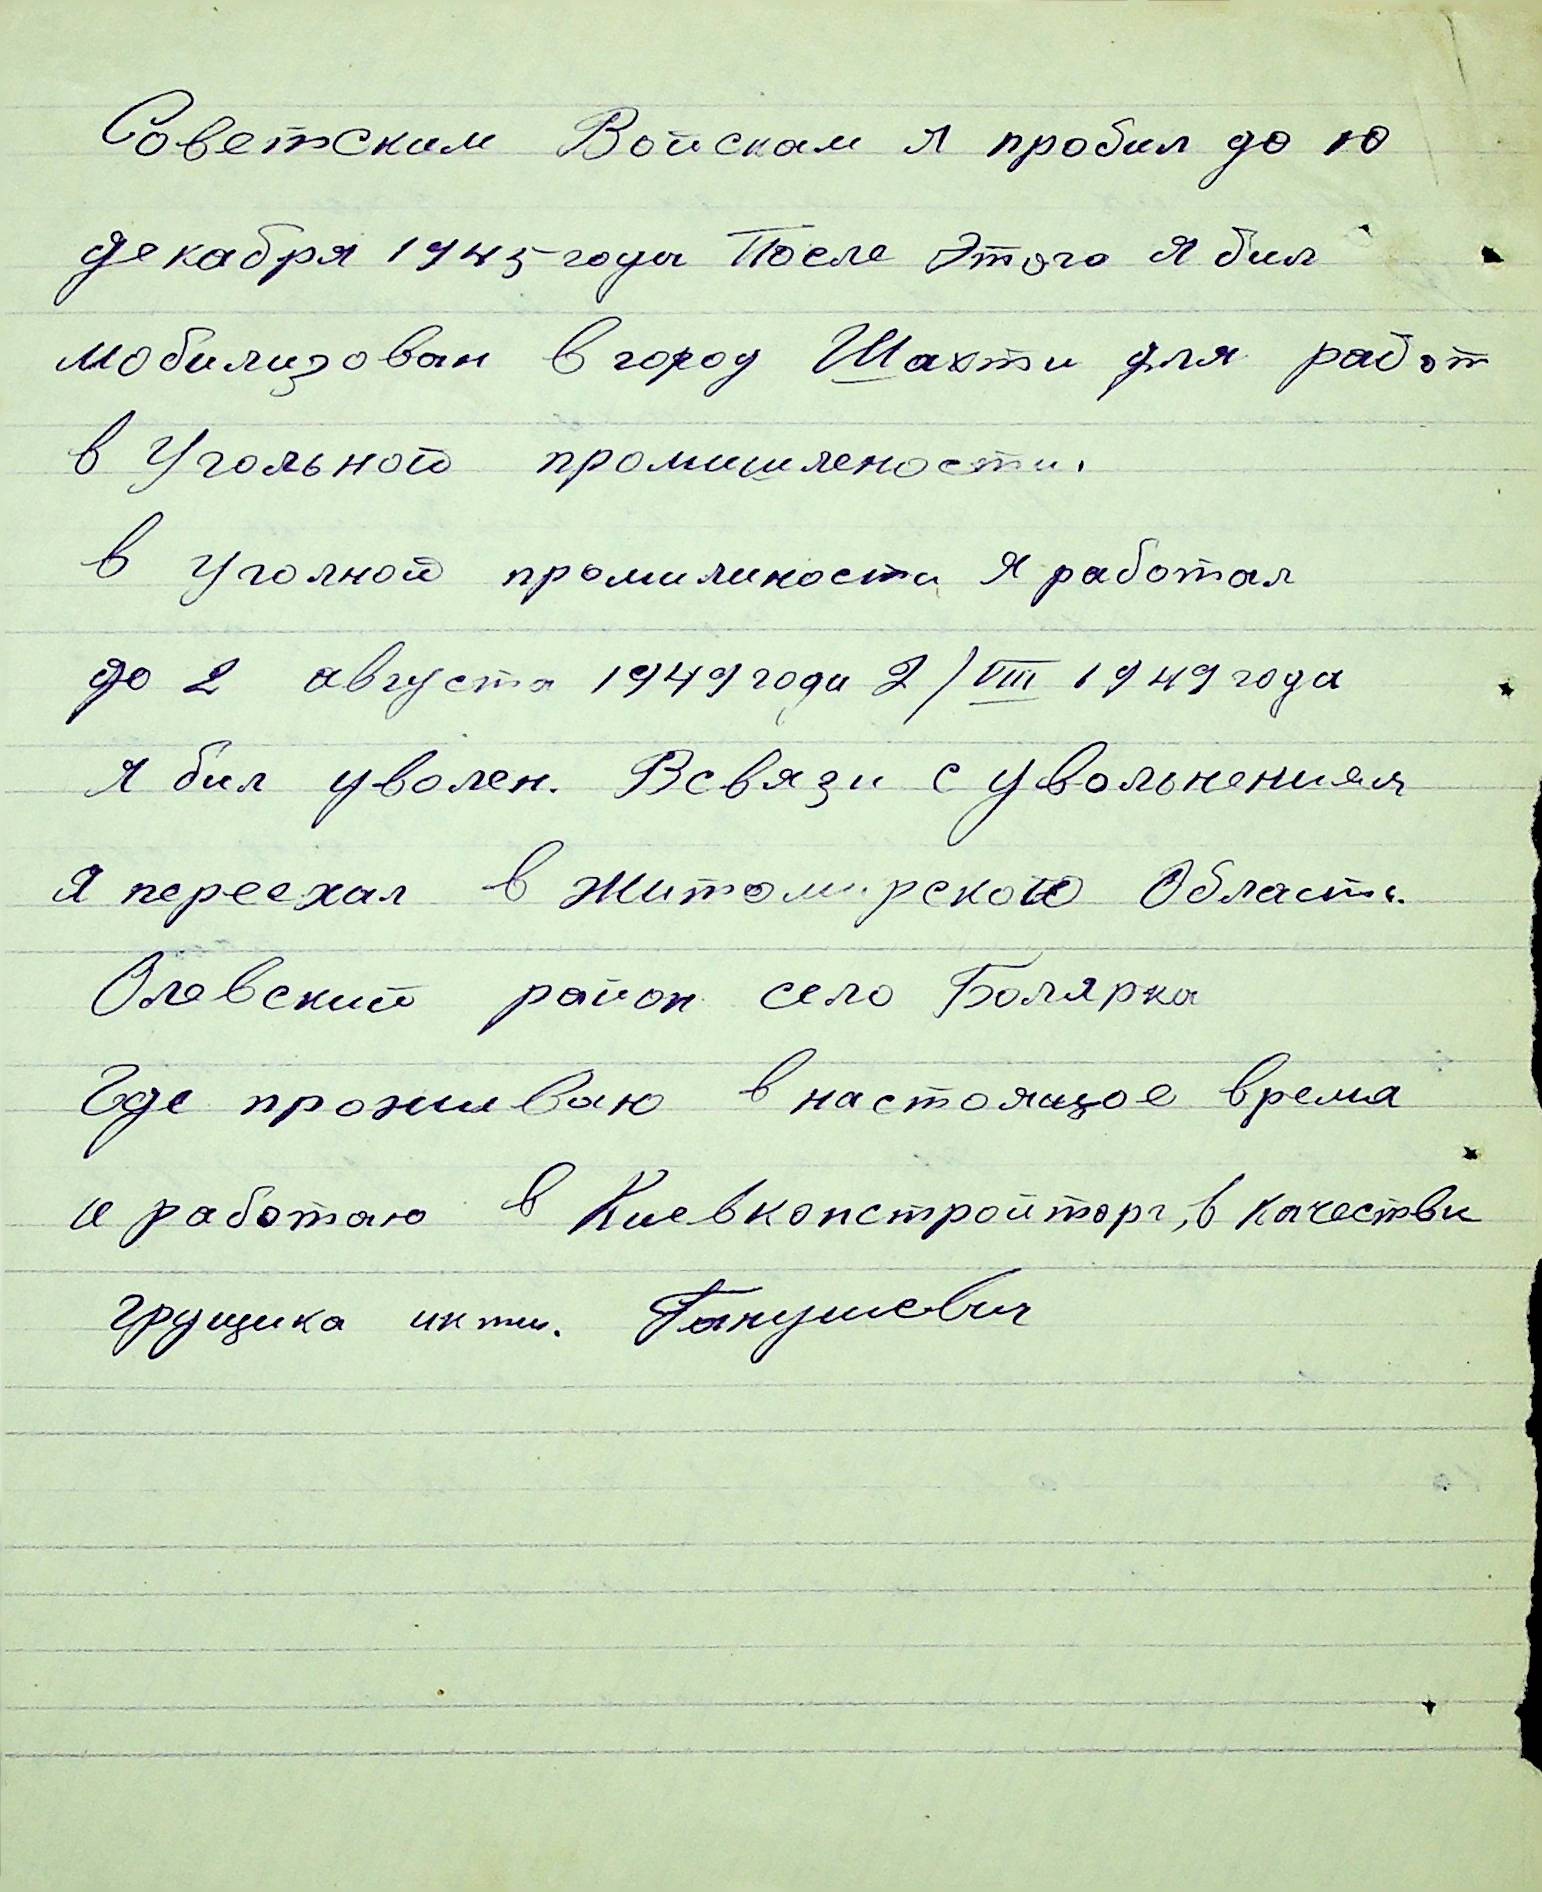 Советским Войскам я пробил до 10
декабря 1945 года После Этого я бил
мобилизован в город Шахти для работ
в Угольной промишлености.
в Уголной промилиности я работал
до 2 августа 1949 года 2/VIII 1949 года
я бил уволен. Всвязи с увольнениям
я переехал в житомирской Область.
Олевский район село Болярка
Где проживаю в настоящое время
и работаю в Киевкопстройторг, в качестви
грущика